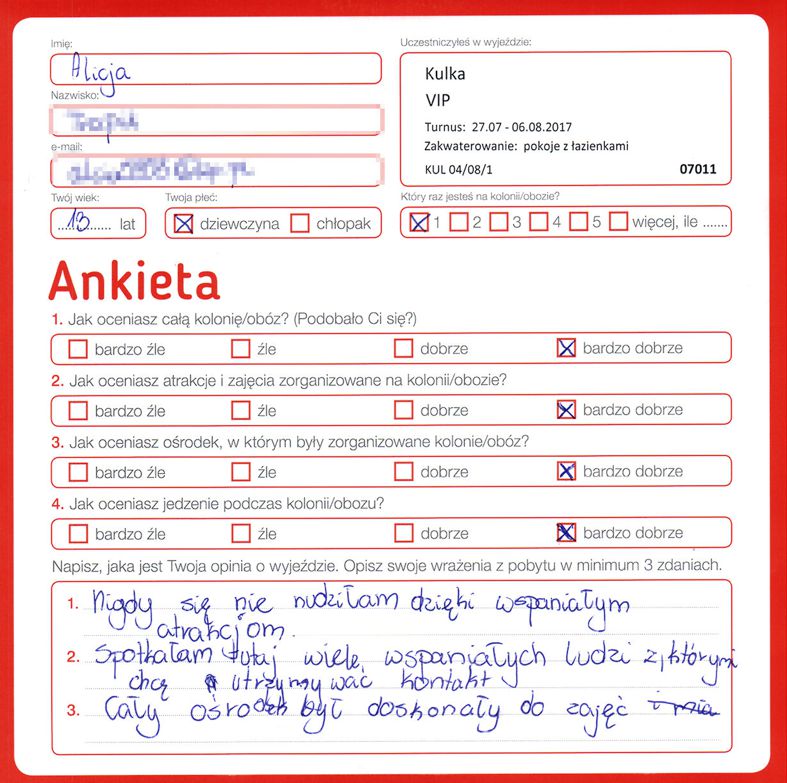 Imię:
Alicja
Nazwisko:
e-mail:
Twój wiek:
....13...... lat
Twoja płeć:
dziewczyna chłopak
Uczestniczyłeś w wyjeździe:
Kulka
VIP
Turnus: 27.07 - 06.08.2017
Zakwaterowanie: pokoje z łazienkami
KUL 04/08/1 07011
Który raz jesteś na kolonii/obozie?
1 2 3 4 5 więcej, ile .......
Ankieta
1. Jak oceniasz całą kolonię/obóz? (Podobało Ci się?)
bardzo źle źle dobrze bardzo dobrze
2. Jak oceniasz atrakcje i zajęcia zorganizowane na kolonii/obozie?
bardzo źle źle dobrze bardzo dobrze
3. Jak oceniasz ośrodek, w którym były zorganizowane kolonie/obóz?
bardzo źle źle dobrze bardzo dobrze
4. Jak oceniasz jedzenie podczas kolonii/obozu?
bardzo źle źle dobrze bardzo dobrze
Napisz, jaka jest Twoja opinia o wyjeździe. Opisz swoje wrażenia z pobytu w minimum 3 zdaniach.
1. Nigdy się nie nudziłam dzięki wspaniałym
atrakcjom.
2. Spotkałam tutaj wiele wspaniałych ludzi z którymi
chcę utrzymywać kontakt
3. Cały ośrodek był doskonały do zajęć